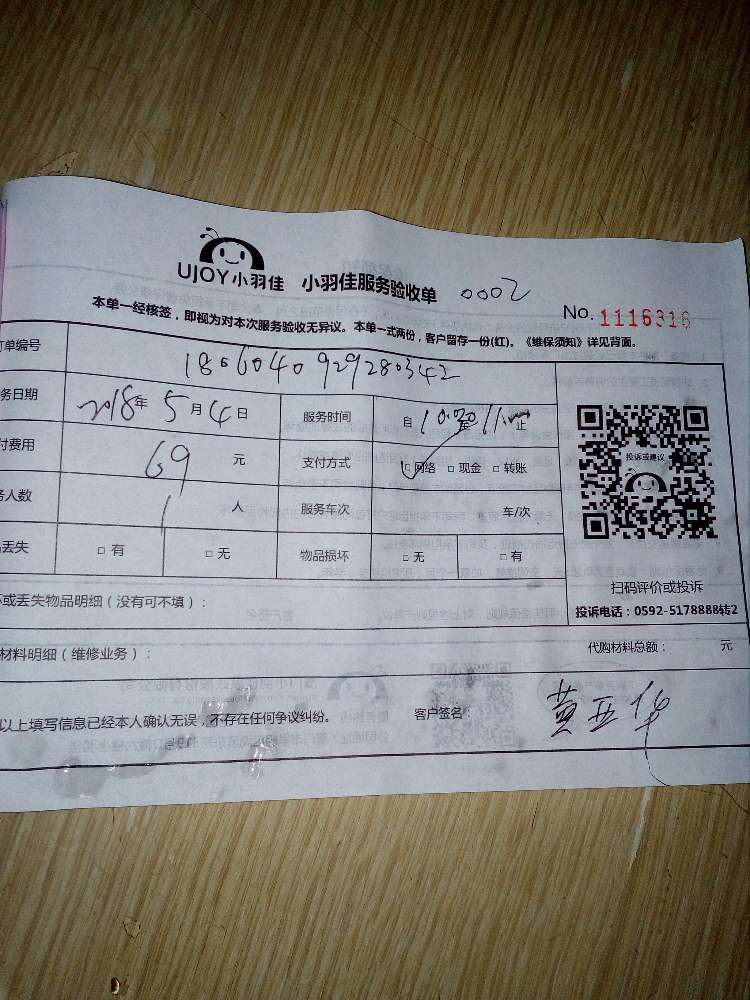 UJOY小羽佳 小羽佳服务验收单 0002
No. 1116316
本单一经核签，即视为对本次服务验收无异议。本单一式两份，客户留存一份(红)。《维保须知》详见背面。
单编号 1806040929280342
务日期 2018年5月4日 服务时间 自 止
付费用 69 元 支付方式 □网络 □现金 □转账
人数 1 人 服务车次 车/次
丢失 □有 □无 物品损坏 □无 □有
投诉或建议
扫码评价或投诉
投诉电话：0592-5178888转2
或丢失物品明细（没有可不填）：
材料明细（维修业务）： 代购材料总额： 元
以上填写信息已经本人确认无误，不存在任何争议纠纷。 客户签名： 黄亚华